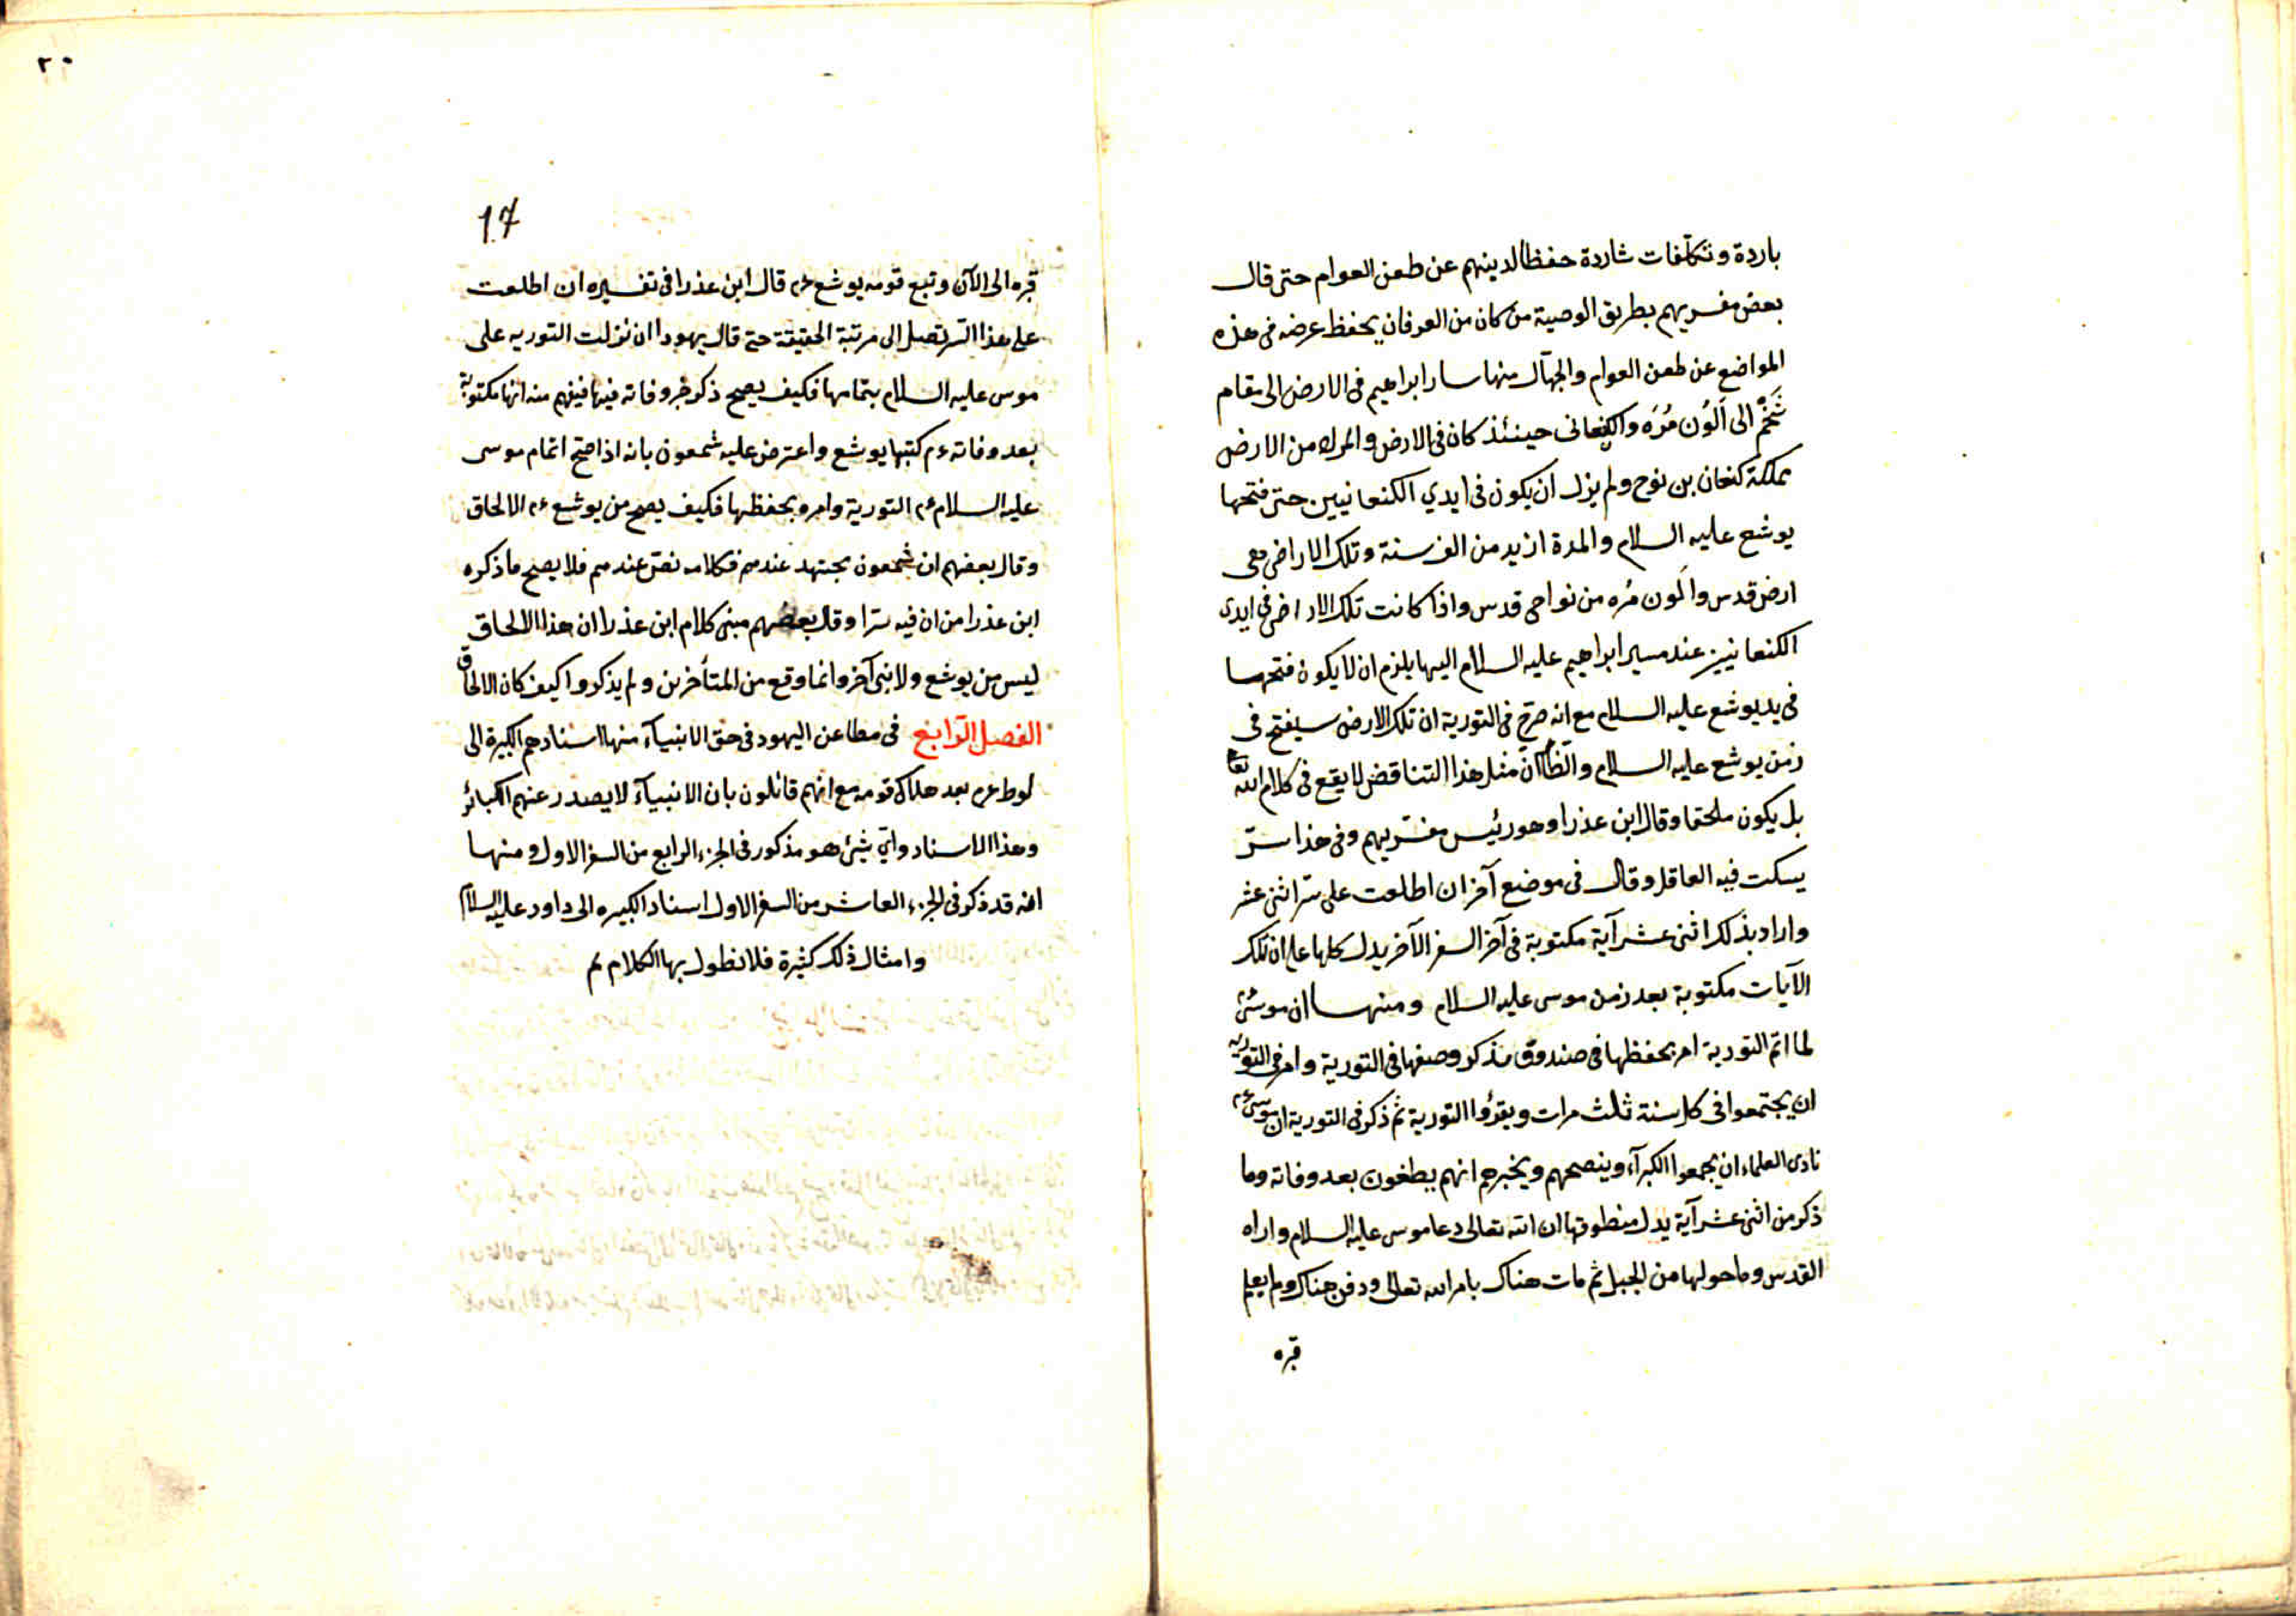 باردة وتكلفات شاردة حفظا لدينهم عن طعن العوام حتى قال
بعض مفسريهم بطريق الوصية من كان من العرفان يحفظ عرضه فى هذه
المواضع عن طعن العوام والجهّال منها سار ابراهيم فى الارض الى مقام
شَخَم الى اَلَوُن مُرَه والكنعانى حينئذ كان فى الارض والمراد من الارض
مملكة كنعان بن نوح ولم يزل ان يكون فى ايدي الكنعانيين حتى فتحها
يوشع عليه السلام والمدة ازيد من الف سنة وتلك الاراضى هى
ارض قدس والَون مُره من نواحى قدس واذا كانت تلك الاراضى فى ايدى
الكنعانيين عند مسير ابراهيم عليه السلام اليها يلزم ان لا يكون فتحها
فى يد يوشع عليه السلام مع انه صرّح فى التورية ان تلك الارض سيفتح فى
زمن يوشع عليه السلام والظّ انّ مثل هذا التناقض لا يقع فى كلام الله تعا
بل يكون ملحقا وقال ابن عذرا وهو رئيس مفسّريهم وفى هذا سرّ
يسكت فيه العاقل وقال فى موضع آخر ان اطلعت على سرّ اثنى عشر
واراد بذلك اثنى عشر آية مكتوبة فى آخر السفر الآخر يدل كلها على ان تلك
الآيات مكتوبة بعد زمن موسى عليه السلام ومنها ان موسى ءم
لما اتمّ التورية امر بحفظها فى صندوق مذكر وصفها فى التورية وامر فى التورية
ان يجتمعوا فى كل سنة ثلث مرات ويقرؤا التورية ثم ذكر فى التورية ان موسى ءم
نادى العلماء ان يجمعوا الكبرآء وينصحهم ويخبرهم انهم يطغون بعد وفاته وما
ذكر من اثنى عشر آية يدل منطوقها ان الله تعالى دعا موسى عليه السلام واراه
القدس وما حولها من الجبل ثم مات هناك بامر الله تعالى ودفن هناك ولم يعلم
قبره
٢٠
17
قبره الى الآن وتبع قومه يوشع ءم قال ابن عذرا فى تفسيره ان اطلعت
على هذا السّر تصل الى مرتبة الحقيقة حتى قال يهودا ان نزلت التوريه على
موسى عليه السلام بتمامها فكيف يصح ذكر خبر وفاته فيها فيفهم منه انها مكتوبة
بعد وفاته ءم كتبها يوشع واعترض عليه شمعون بانه اذا صح اتمام موسى
عليه السلام ءم التورية وامر بحفظها فكيف يصح من يوشع ءم الالحاق
وقال بعضهم ان شمعون مجتهد عندهم فكلامه نصّ عندهم فلا يصح ما ذكره
ابن عذرا من ان فيه سرّا وقال بعضهم مبنى كلام ابن عذرا ان هذا الالحاق
ليس من يوشع ولا نبى آخر وانما وقع من المتأخرين ولم يذكروا كيف كان الالحاق
الفصل الرّابع فى مطاعن اليهود فى حق الانبيآء منها اسنادهم الكبيرة الى
لوط ءم بعد هلاك قومه مع انهم قائلون بان الانبيآء لا يصدر عنهم الكبائر
وهذا الاسناد وايّ شئ هو مذكور فى الجزء الرابع من السفر الاول ومنها
انه قد ذكر فى الجزء العاشر من السفر الاول اسناد الكبيره الى داود عليه السلام
وامثال ذلك كثيرة فلا نطول بها الكلام تم